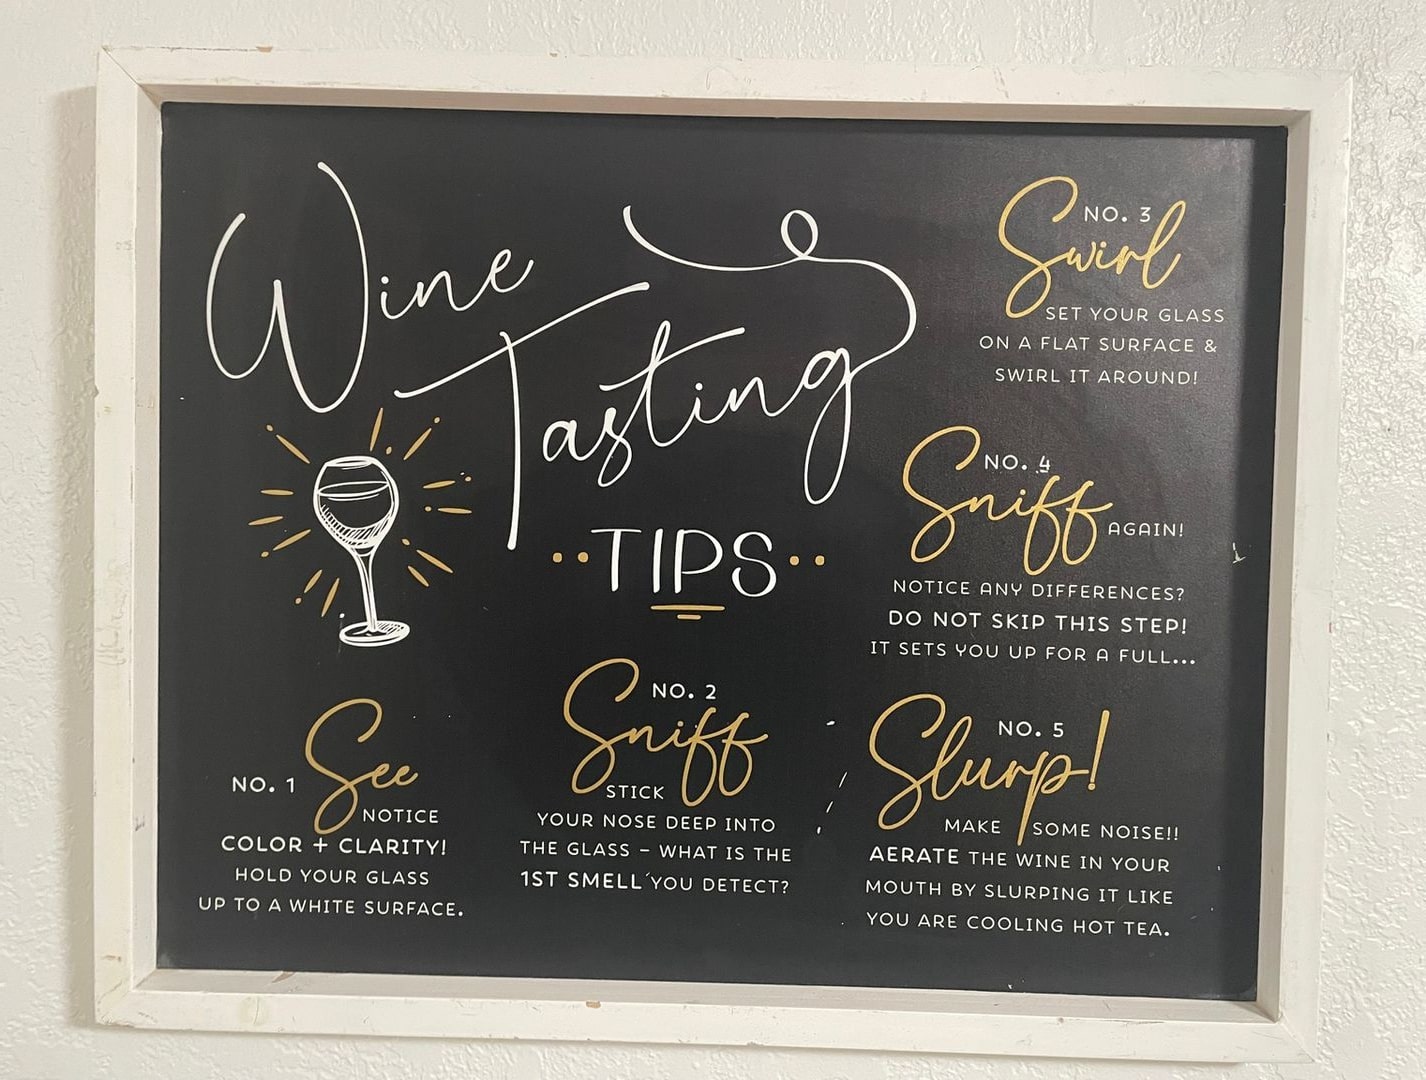 Wine
Tasting
TIPS
NO. 1
See
NOTICE
COLOR + CLARITY!
HOLD YOUR GLASS
UP TO A WHITE SURFACE.
NO. 2
Sniff
STICK
YOUR NOSE DEEP INTO
THE GLASS – WHAT IS THE
1ST SMELL YOU DETECT?
NO. 3
Swirl
SET YOUR GLASS
ON A FLAT SURFACE &
SWIRL IT AROUND!
NO. 4
Sniff
AGAIN!
NOTICE ANY DIFFERENCES?
DO NOT SKIP THIS STEP!
IT SETS YOU UP FOR A FULL...
NO. 5
Slurp!
MAKE SOME NOISE!!
AERATE THE WINE IN YOUR
MOUTH BY SLURPING IT LIKE
YOU ARE COOLING HOT TEA.